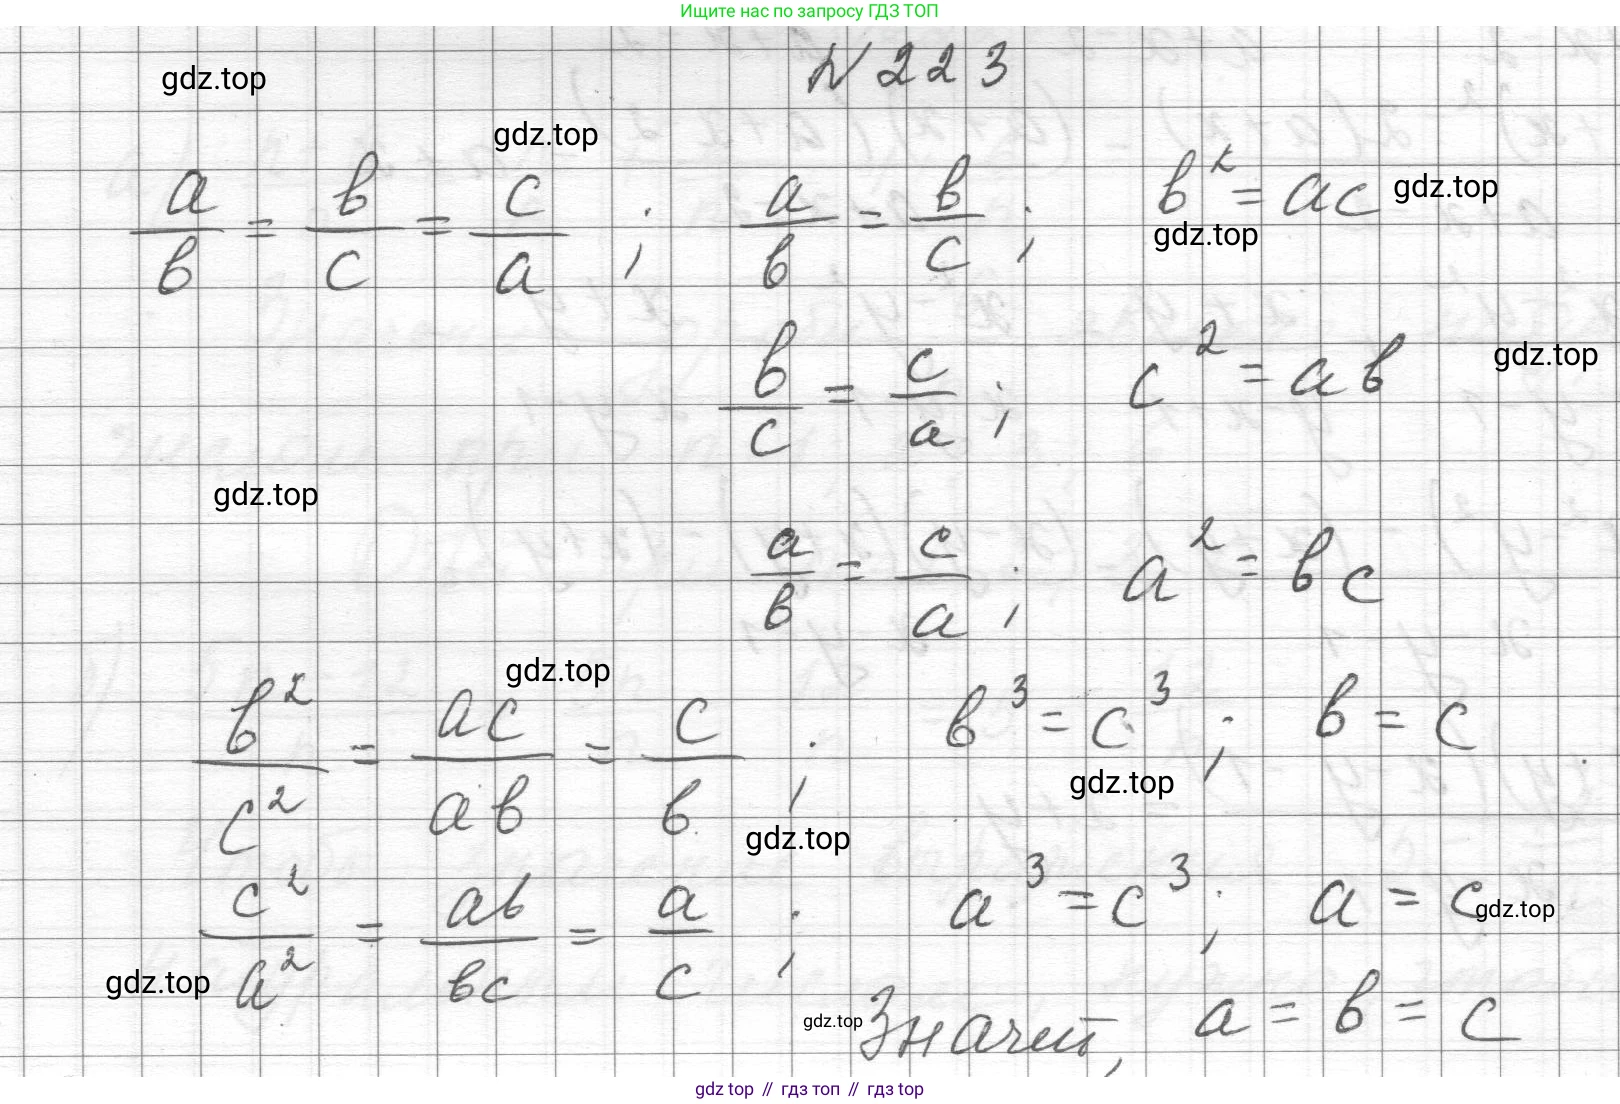 Ищите нас по запросу ГДЗ ТОП
N 223
gdz.top
gdz.top
a/в = в/c = c/a ; a/в = в/c ; в² = ac gdz.top
gdz.top
в/c = c/a ; c² = aв gdz.top
gdz.top
a/в = c/a ; a² = вc
gdz.top
в²/c² = ac/aв = c/в ; в³ = c³ ; в = c
gdz.top
gdz.top
c²/a² = aв/вc = a/c ; a³ = c³ ; a = c gdz.top
gdz.top
gdz.top Значит, a = в = c
gdz top // гдз топ // гдз top